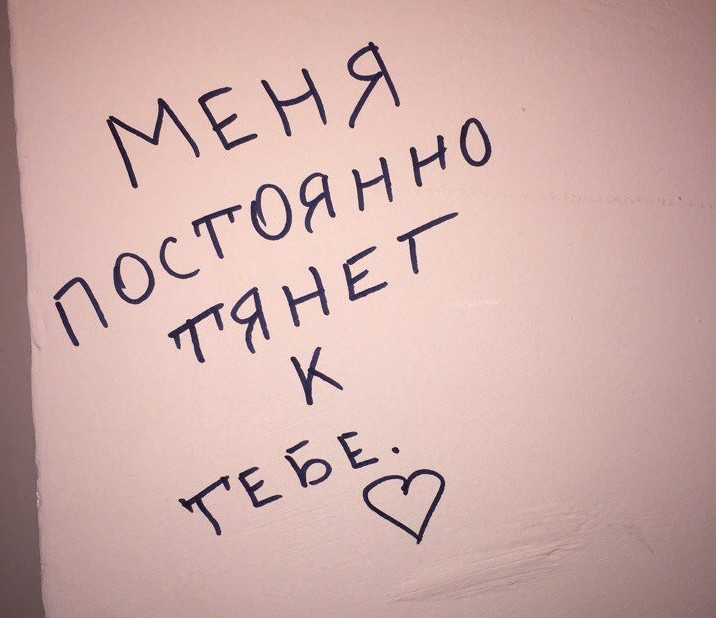 МЕНЯ
ПОСТОЯННО
ТЯНЕТ
К
ТЕБЕ.